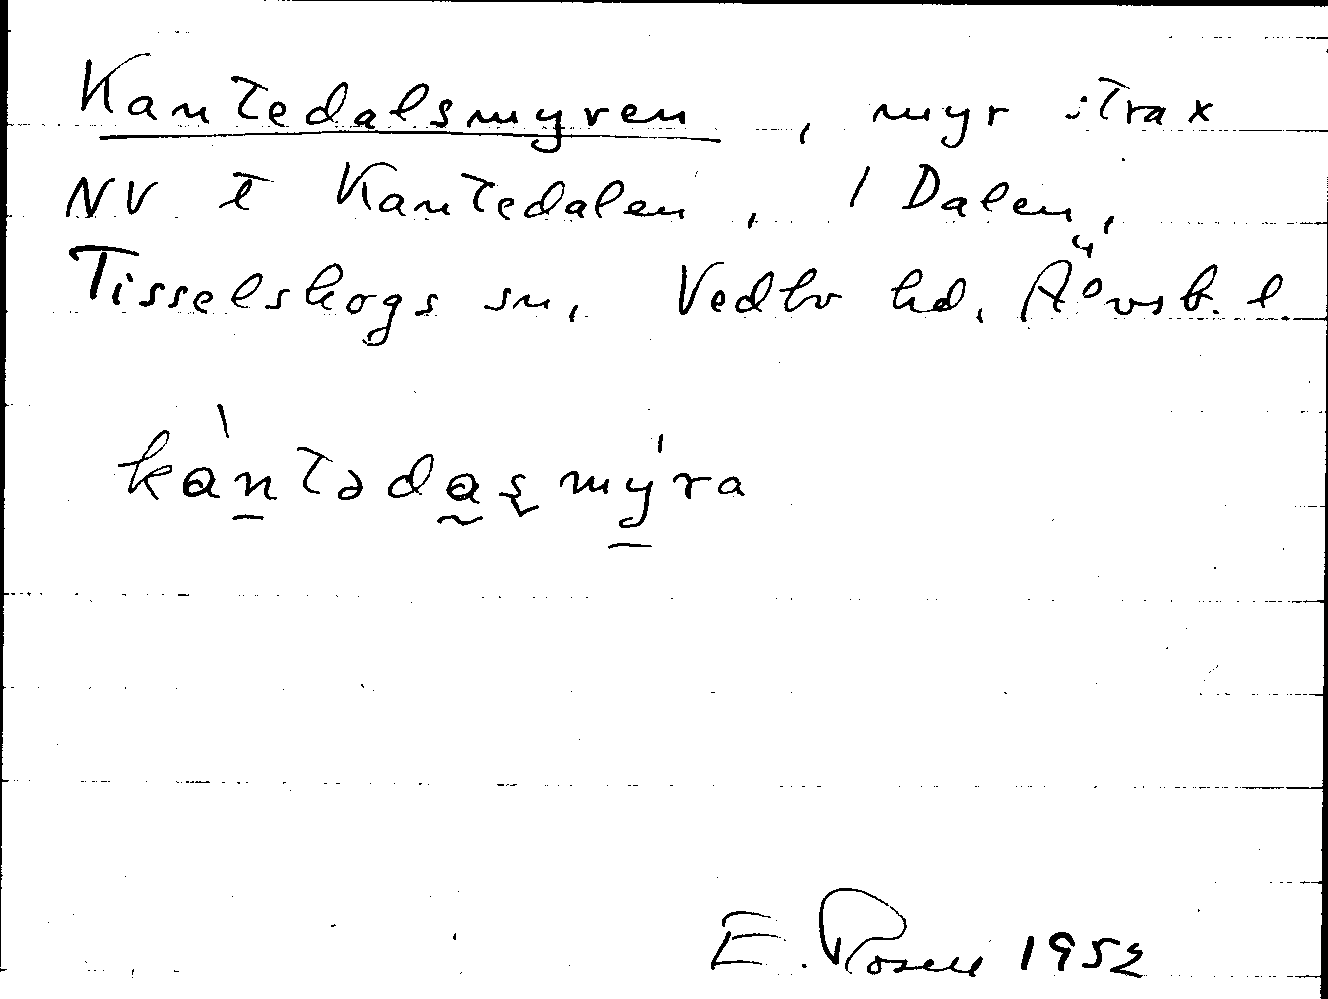 Kantedalsmyren, myr strax
NV t Kantedalen, 1 Dalen,
Tisselskogs sn, Vedbo hd. Älvsb. l.
kàntədaʂmýra
E. Rosell 1952